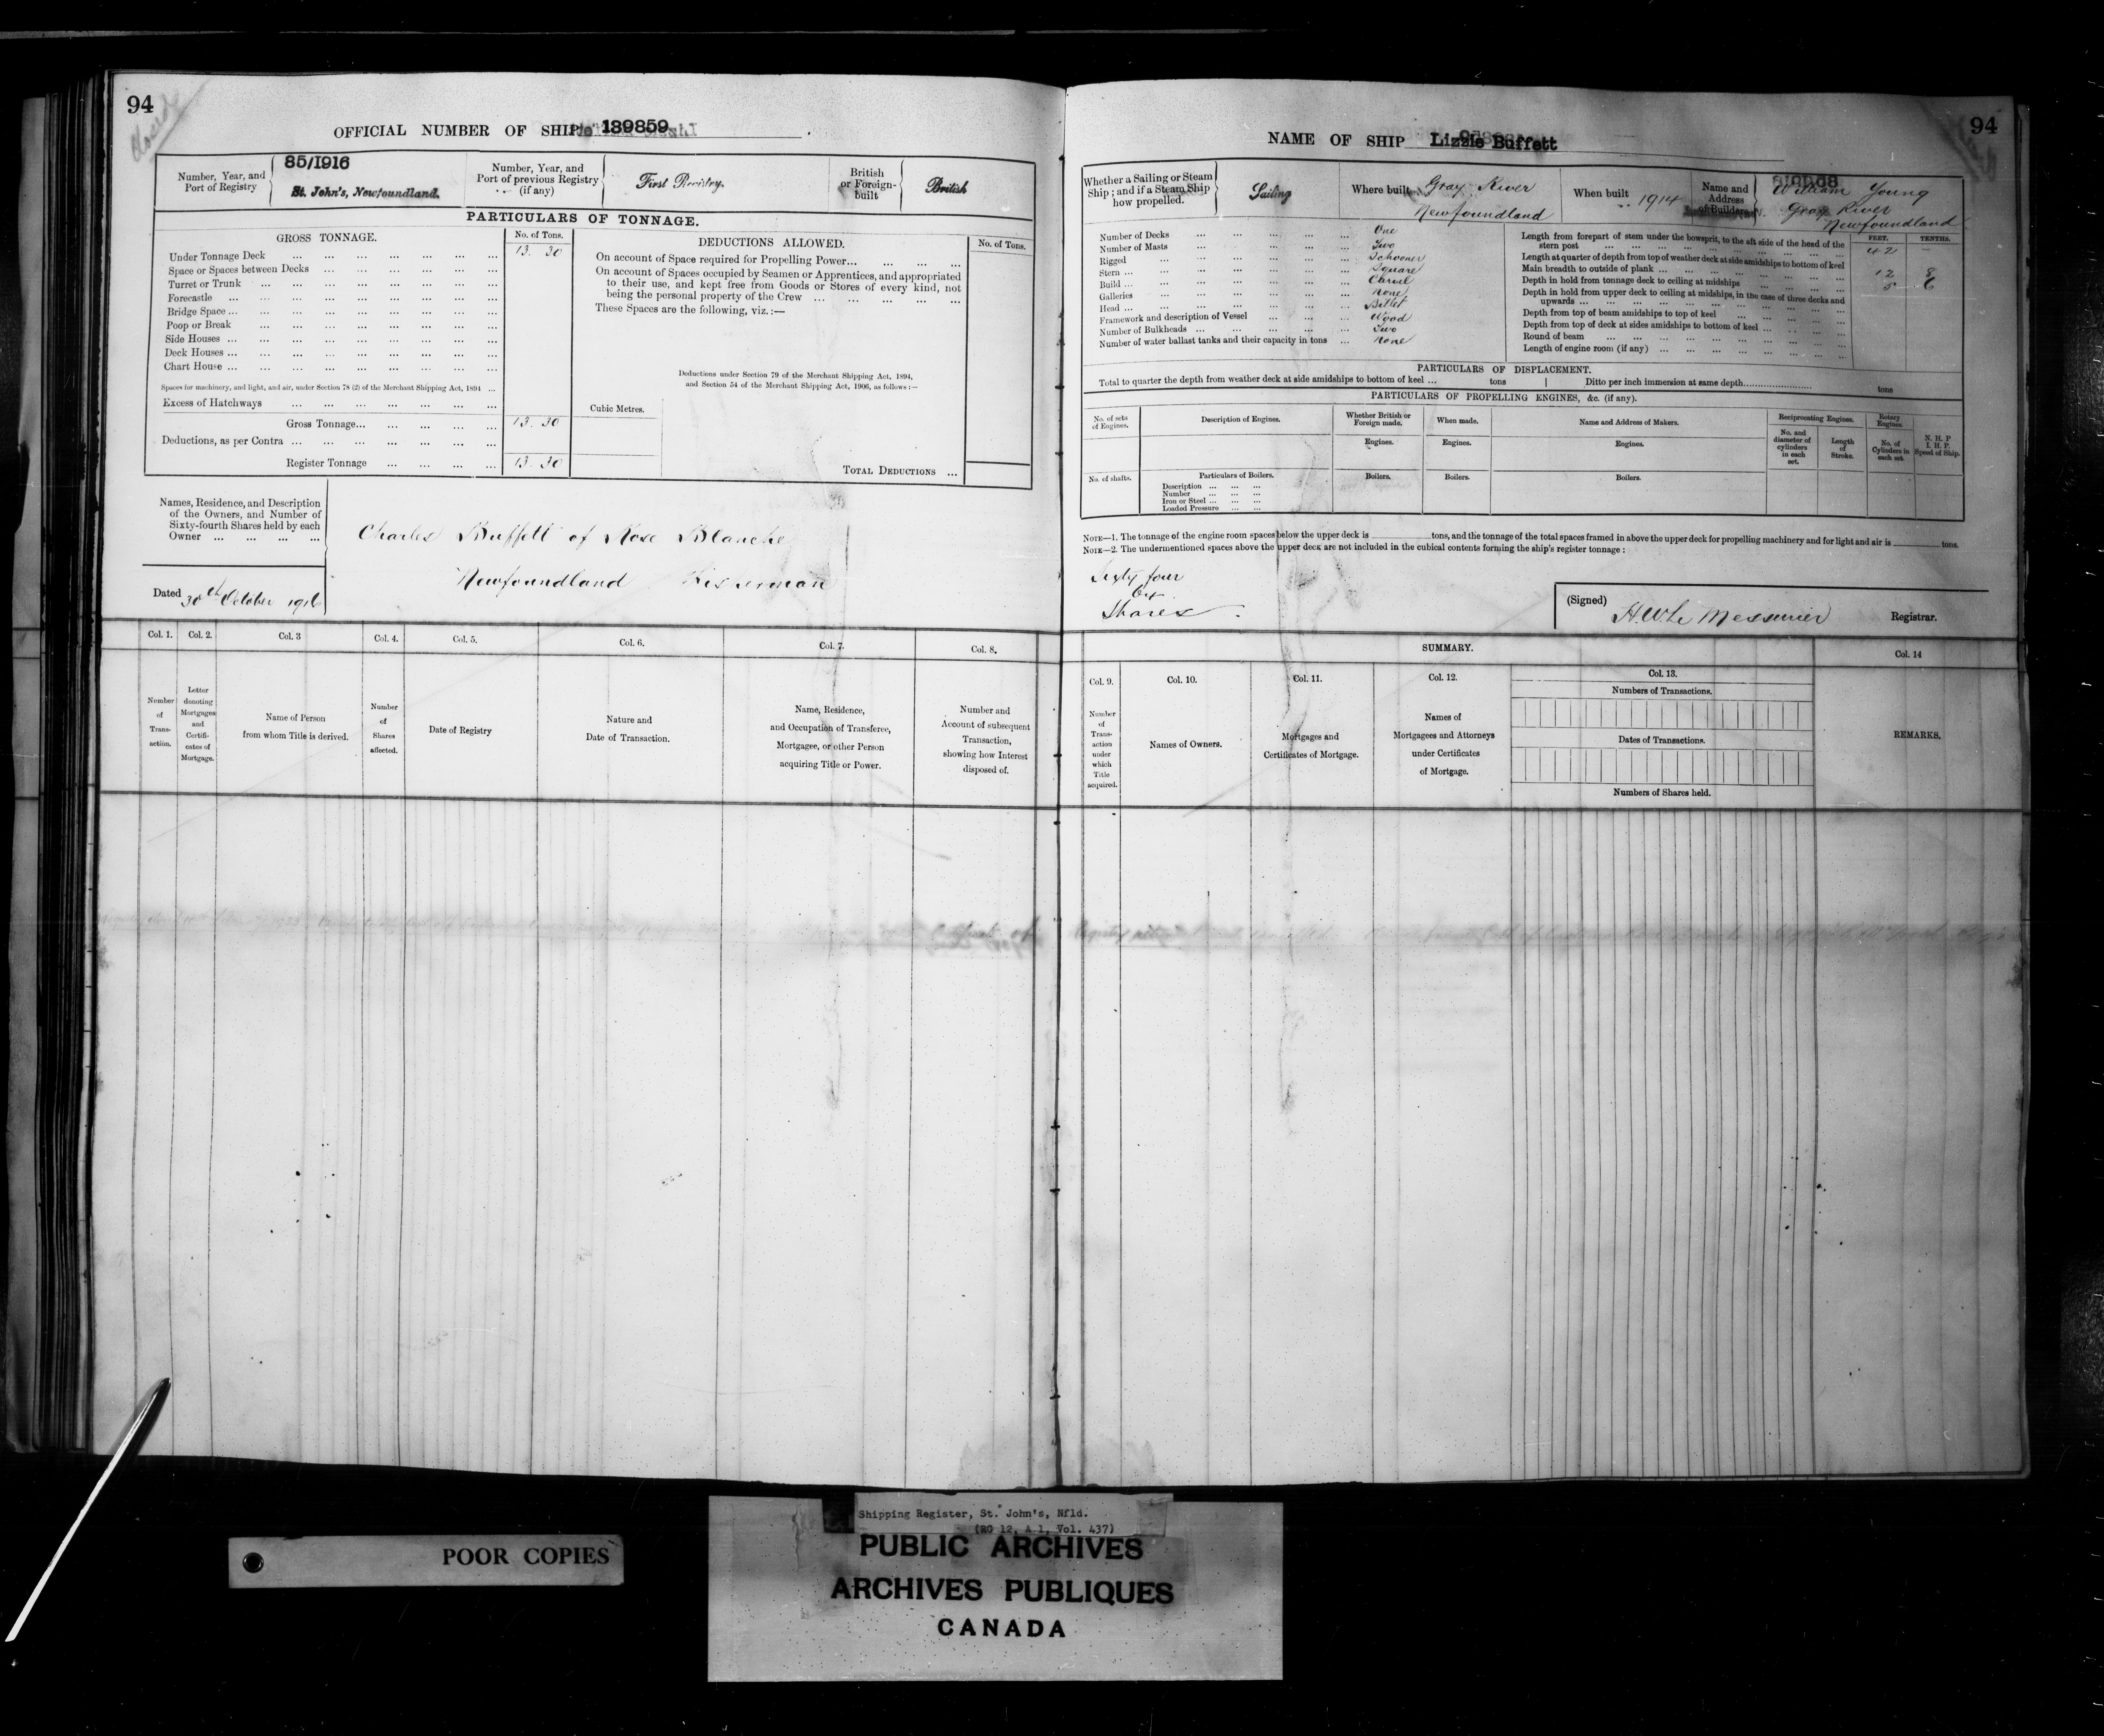 94
Closed
OFFICIAL NUMBER OF SHIP 139859
Number, Year, and Port of Registry
85/1916
St. John's, Newfoundland.
Number, Year, and Port of previous Registry (if any)
First Registry.
British or Foreign-built
British
PARTICULARS OF TONNAGE.
GROSS TONNAGE.
No. of Tons.
Under Tonnage Deck ... 13. 30
Space or Spaces between Decks ...
Turret or Trunk ...
Forecastle ...
Bridge Space ...
Poop or Break ...
Side Houses ...
Deck Houses ...
Chart House ...
Spaces for machinery, and light, and air, under Section 78 (2) of the Merchant Shipping Act, 1894 ...
Excess of Hatchways ...
Gross Tonnage... 13. 30
Deductions, as per Contra ...
Register Tonnage ... 13. 30
DEDUCTIONS ALLOWED.
No. of Tons.
On account of Space required for Propelling Power...
On account of Spaces occupied by Seamen or Apprentices, and appropriated
to their use, and kept free from Goods or Stores of every kind, not
being the personal property of the Crew ...
These Spaces are the following, viz.:—
Deductions under Section 79 of the Merchant Shipping Act, 1894,
and Section 54 of the Merchant Shipping Act, 1906, as follows:—
Cubic Metres.
TOTAL DEDUCTIONS ...
Names, Residence, and Description
of the Owners, and Number of
Sixty-fourth Shares held by each
Owner ...
Charles Buffett of Rose Blanche
Newfoundland Fisherman
Dated 30th October 1916
Col. 1. Col. 2. Col. 3 Col. 4. Col. 5. Col. 6. Col. 7. Col. 8.
Number of Transaction.
Letter denoting Mortgages and Certificates of Mortgage.
Name of Person from whom Title is derived.
Number of Shares affected.
Date of Registry
Nature and Date of Transaction.
Name, Residence, and Occupation of Transferee, Mortgagee, or other Person acquiring Title or Power.
Number and Account of subsequent Transaction, showing how Interest disposed of.
94
NAME OF SHIP Lizzie Buffett
Whether a Sailing or Steam Ship; and if a Steam Ship how propelled.
Sailing
Where built
Gray River
Newfoundland
When built
1914
Name and Address of Builders
William Young
Gray River
Newfoundland
Number of Decks ... One
Number of Masts ... Two
Rigged ... Schooner
Stern ... Square
Build ... Carvel
Galleries ... None
Head ... Billet
Framework and description of Vessel ... Wood
Number of Bulkheads ... Two
Number of water ballast tanks and their capacity in tons ... None
FEET. TENTHS.
Length from forepart of stem under the bowsprit, to the aft side of the head of the
stern post ... 42 —
Length at quarter of depth from top of weather deck at side amidships to bottom of keel
Main breadth to outside of plank ... 12 8
Depth in hold from tonnage deck to ceiling at midships ... 5 6
Depth in hold from upper deck to ceiling at midships, in the case of three decks and
upwards ...
Depth from top of beam amidships to top of keel ...
Depth from top of deck at sides amidships to bottom of keel ...
Round of beam ...
Length of engine room (if any) ...
PARTICULARS OF DISPLACEMENT.
Total to quarter the depth from weather deck at side amidships to bottom of keel ... tons
Ditto per inch immersion at same depth........ tons
PARTICULARS OF PROPELLING ENGINES, &c. (if any).
No. of sets of Engines.
Description of Engines.
Whether British or Foreign made.
When made.
Name and Address of Makers.
Reciprocating Engines.
Rotary Engines.
N. H. P
I. H. P.
Speed of Ship.
Engines. Engines. Engines.
No. and diameter of cylinders in each set.
Length of Stroke.
No. of Cylinders in each set.
No. of shafts.
Particulars of Boilers.
Boilers. Boilers. Boilers.
Description ...
Number ...
Iron or Steel ...
Loaded Pressure ...
NOTE—1. The tonnage of the engine room spaces below the upper deck is tons, and the tonnage of the total spaces framed in above the upper deck for propelling machinery and for light and air is tons.
NOTE—2. The undermentioned spaces above the upper deck are not included in the cubical contents forming the ship's register tonnage:
Sixty four
Shares
(Signed) H.W. Le Messurier Registrar.
SUMMARY.
Col. 9. Col. 10. Col. 11. Col. 12. Col. 13. Col. 14
Number of Transaction under which Title acquired.
Names of Owners.
Mortgages and Certificates of Mortgage.
Names of Mortgagees and Attorneys under Certificates of Mortgage.
Numbers of Transactions.
Dates of Transactions.
Numbers of Shares held.
REMARKS.
POOR COPIES
Shipping Register, St. John's, Nfld.
(RG 12, A 1, Vol. 437)
PUBLIC ARCHIVES
ARCHIVES PUBLIQUES
CANADA